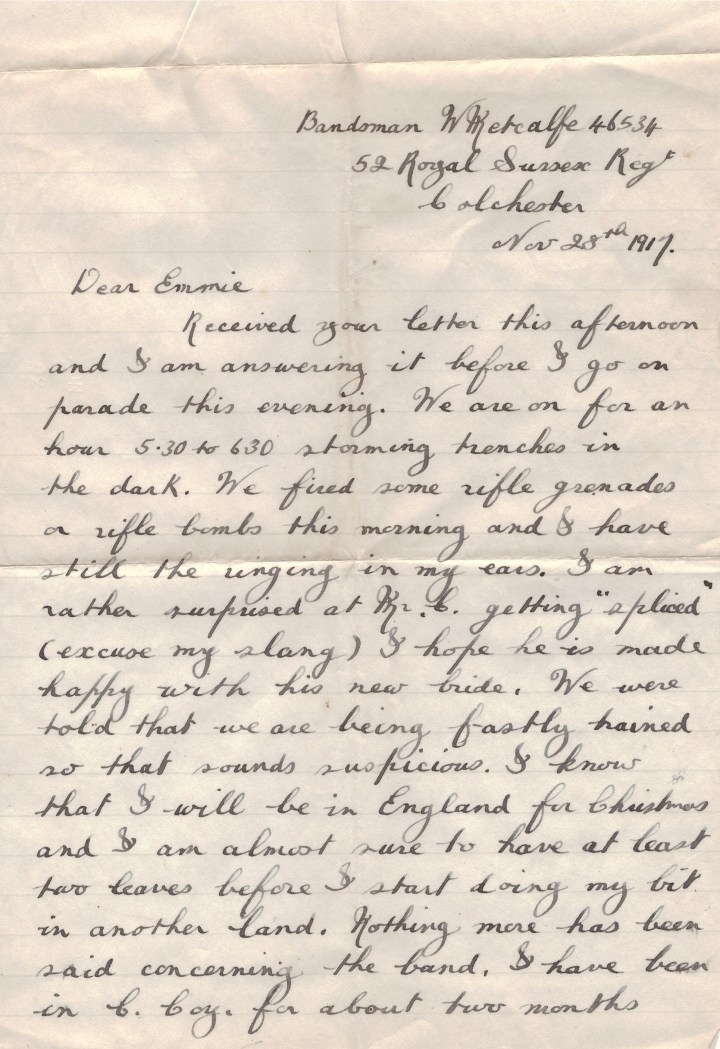 Bandsman W Metcalfe 46534
52 Royal Sussex Regt
Colchester
Nov 28th 1917.
Dear Emmie
Received your letter this afternoon
and I am answering it before I go on
parade this evening. We are on for an
hour 5.30 to 630 storming trenches in
the dark. We fired some rifle grenades
or rifle bombs this morning and I have
still the ringing in my ears. I am
rather surprised at Mr. C. getting "spliced"
(excuse my slang) I hope he is made
happy with his new bride. We were
told that we are being fastly trained
so that sounds suspicious. I know
that I will be in England for Christmas
and I am almost sure to have at least
two leaves before I start doing my bit
in another land. Nothing more has been
said concerning the band. I have been
in C. Coy. for about two months